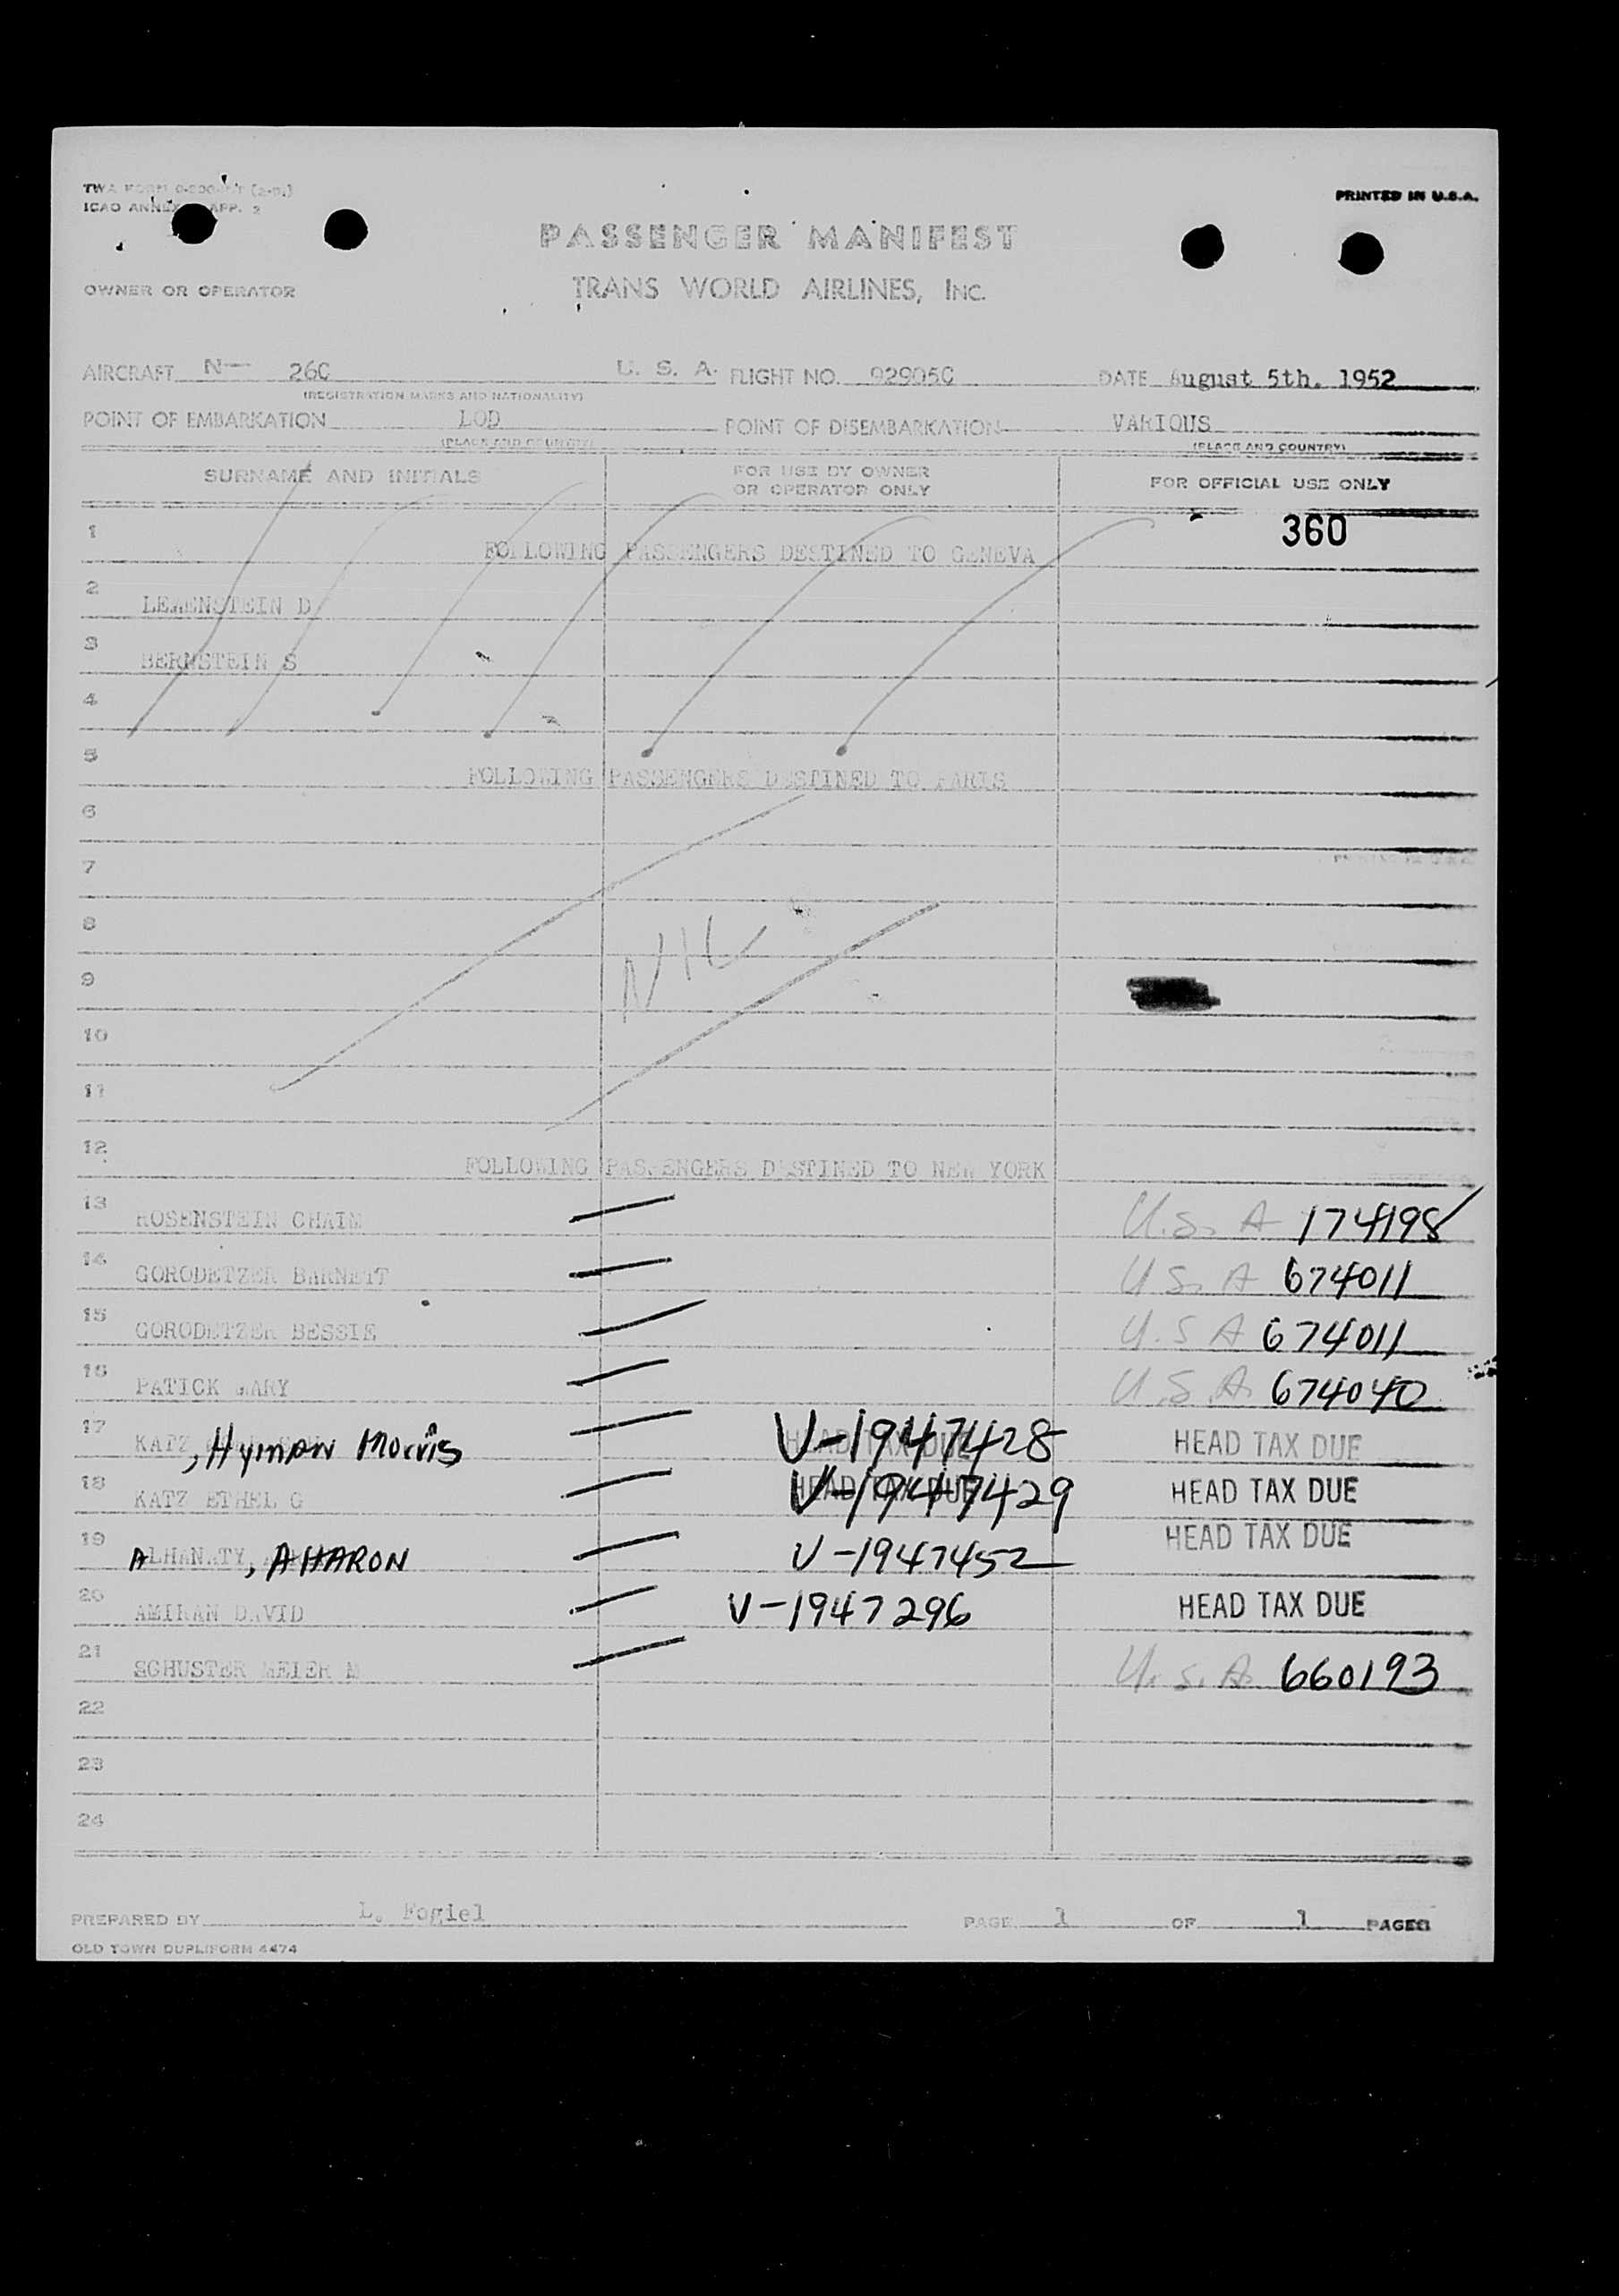 ICAO ANNEX APP. 2
PRINTED IN U.S.A.
PASSENGER MANIFEST
OWNER OR OPERATOR
TRANS WORLD AIRLINES, INC.
AIRCRAFT N— 26C U. S. A. FLIGHT NO. 929050 DATE August 5th. 1952
(REGISTRATION MARKS AND NATIONALITY)
POINT OF EMBARKATION LOD POINT OF DISEMBARKATION VARIOUS
(PLACE AND COUNTRY) (PLACE AND COUNTRY)
SURNAME AND INITIALS FOR USE BY OWNER OR OPERATOR ONLY FOR OFFICIAL USE ONLY
360
1 FOLLOWING PASSENGERS DESTINED TO GENEVA
2 D
3 BERNSTEIN S
4
5 FOLLOWING PASSENGERS DESTINED TO PARIS
6
7
8
NIL
9
10
11
12 FOLLOWING PASSENGERS DESTINED TO NEW YORK
13 ROSENSTEIN CHAIM U.S. A 174198
14 GORODETZER BARNETT U.S. A 674011
15 GORODETZER BESSIE U.S A 674011
16 PATICK MARY U.S.A. 674040
17 KATZ , Hyman Morris HEAD TAX DUE V-1947428 HEAD TAX DUE
18 KATZ ETHEL G HEAD TAX DUE V-1947429 HEAD TAX DUE
19 ALHANATY, AHARON V-1947452 HEAD TAX DUE
20 AMIRAN DAVID V-1947296 HEAD TAX DUE
21 SCHUSTER MEIER M U.S.A. 660193
22
23
24
PREPARED BY L. Fogiel PAGE 1 OF 1 PAGES
OLD TOWN DUPLIFORM 4474